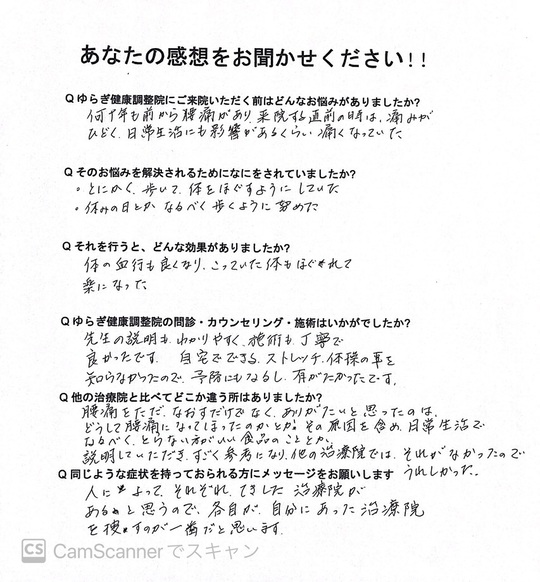 あなたの感想をお聞かせください!!
Q ゆらぎ健康調整院にご来院いただく前はどんなお悩みがありましたか?
何十年も前から腰痛があり、来院する直前の時は、痛みが
ひどく、日常生活にも影響があるくらい痛くなっていた
Q そのお悩みを解決されるためになにをされていましたか?
・とにかく、歩いて、体をほぐすようにしていた
・休みの日とか なるべく歩くように努めた
Q それを行うと、どんな効果がありましたか?
体の血行も良くなり、こっていた体もほぐれて
楽になった
Q ゆらぎ健康調整院の問診・カウンセリング・施術はいかがでしたか?
先生の説明も、わかりやすく、施術も、丁寧で
良かったです。 自宅でできる、ストレッチ、体操の事を
知らなかったので、予防にもなるし、有がたかったです。
Q 他の治療院と比べてどこか違う所はありましたか?
腰痛をただ、なおすだけでなく、ありがたいと思ったのは、
どうして腰痛になってしまったのかとか。その原因を含め、日常生活で
なるべく、とらない方がいい食品のこととか、
説明していただき、すごく参考になり、他の治療院では、それがなかったので
うれしかった。
Q 同じような症状を持っておられる方にメッセージをお願いします
人によって、それぞれ、てきした 治療院が
あると思うので、各自が、自分にあった治療院
を捜すのが一番だと思います。
CS CamScannerでスキャン